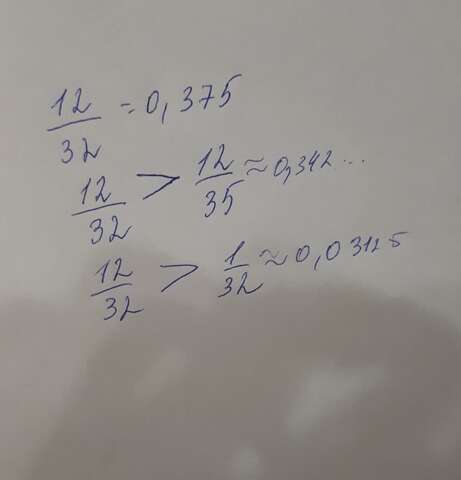 12/32 = 0,375
12/32 > 12/35 ≈ 0,342...
12/32 > 1/32 ≈ 0,03125